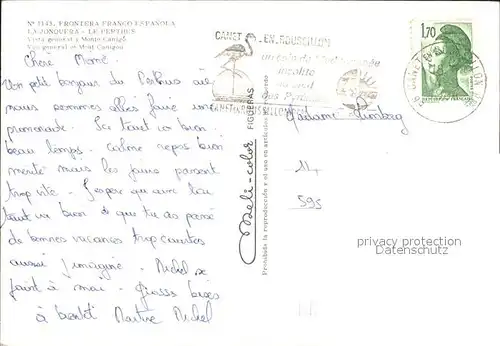 Nº 1143. FRONTERA FRANCO ESPAÑOLA
LA JONQUERA - LE PERTHUS
Vista general y Monte Canigó
Vue general et Mont Canigou
Chère Mamé
Un petit bonjour du Perthus où
nous sommes allés faire une
promenade. Ici tout va bien
beau temps. Calme repos bien
mérité mais les jours passent
trop vite. J'espère qu'avec
tout va bien et que tu as passé
de bonnes vacances trop courtes
aussi j'imagine. Michel se
joint à moi. Grosses bises
à bientôt Martine Michel
Meli-color FIGUERAS
Prohibida la reproducción y el uso en artículos
CANET EN ROUSSILLON
insolite
CANET EN ROUSSILLON
1,70
Madame
11,
595
privacy protection
Datenschutz